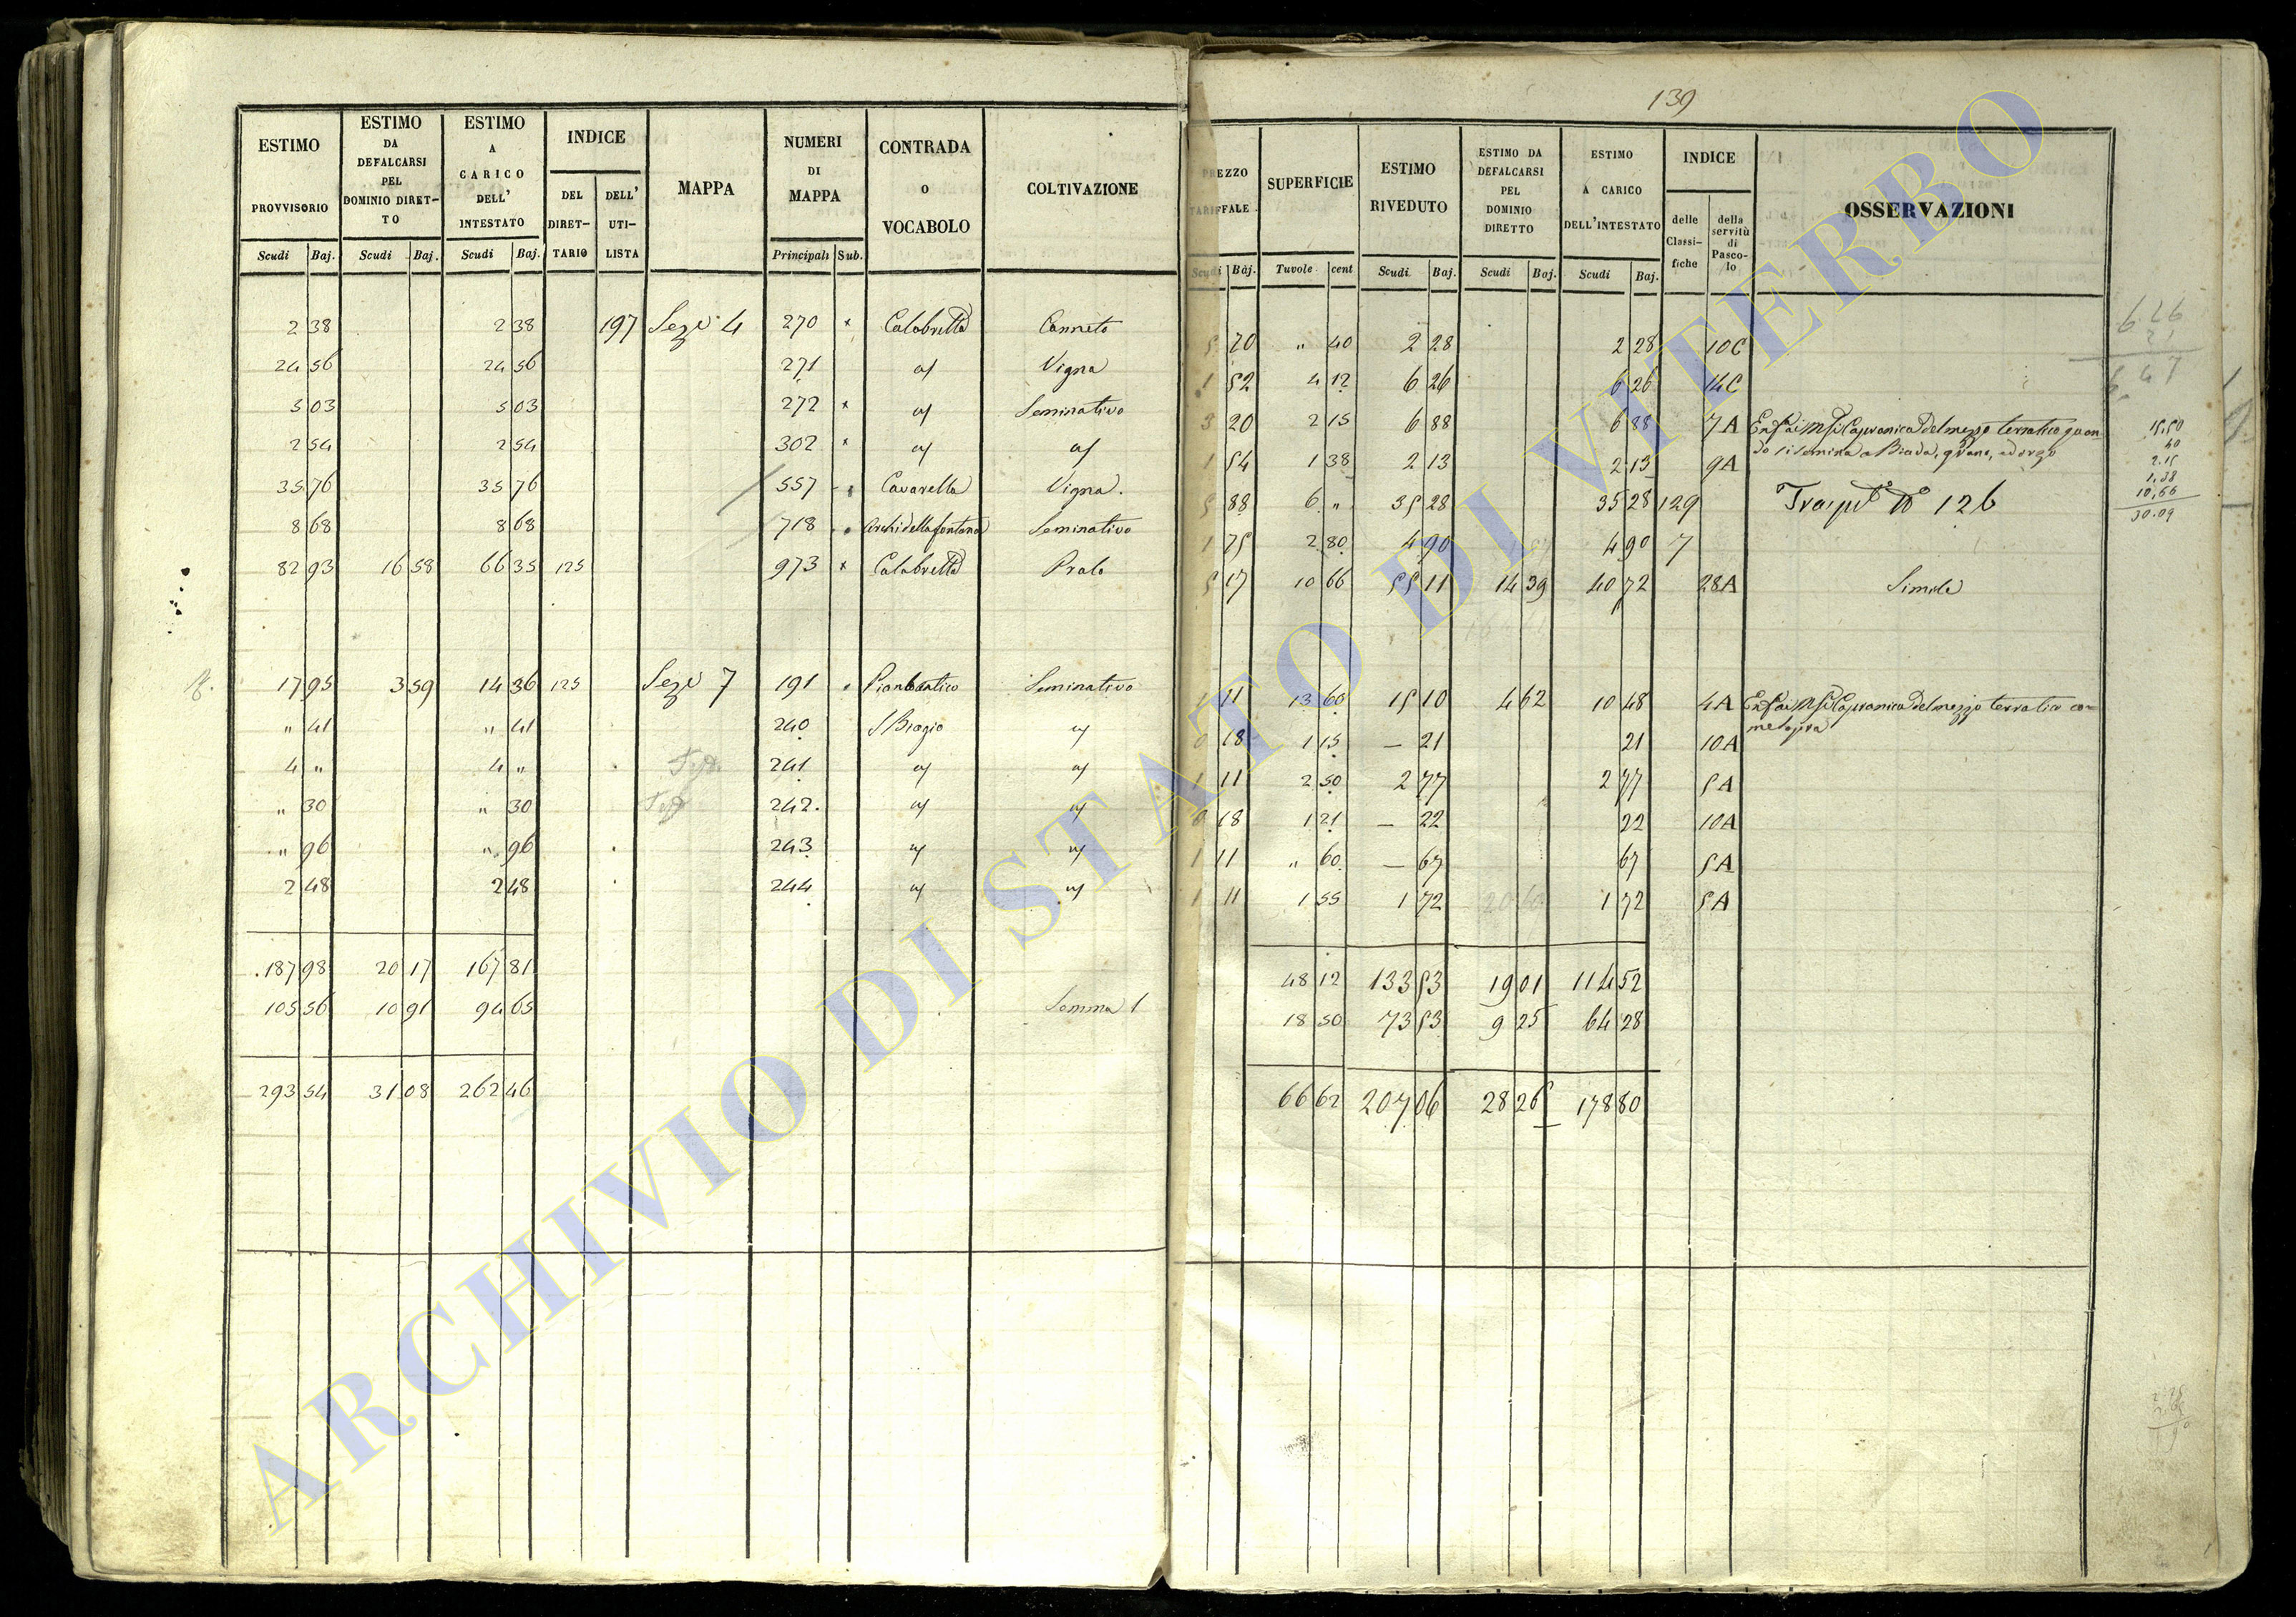 139
ESTIMO PROVVISORIO | ESTIMO DA DEFALCARSI PEL DOMINIO DIRETTO | ESTIMO A CARICO DELL' INTESTATO | INDICE | MAPPA | NUMERI DI MAPPA | CONTRADA O VOCABOLO | COLTIVAZIONE
DEL DIRETTARIO | DELL' UTILISTA
Scudi | Baj. | Scudi | Baj. | Scudi | Baj. | Principali | Sub.
2 38 | 2 38 | 197 | Sezе 4 | 270 x | Calabretta | Canneto
24 56 | 24 56 | 271 | Vigna
5 03 | 5 03 | 272 x | Seminativo
2 54 | 2 54 | 302 x
35 76 | 35 76 | 557 | Cavarella | Vigna.
8 68 | 8 68 | 718 | Archi della fontana | Seminativo
82 93 | 16 58 | 66 35 | 125 | 973 x | Calabretta | Prato
17 95 | 3 59 | 14 36 | 125 | Seze 7 | 191 | Seminativo
" 41 | " 41 | 240 | S Biagio
4 " | 4 " | 241
" 30 | " 30 | 242.
" 96 | " 96 | 243
2 48 | 2 48 | 244
187 98 | 20 17 | 167 81
105 56 | 10 91 | 94 65 | Somma 1
293 54 | 31 08 | 262 46
PREZZO TARIFFALE | SUPERFICIE | ESTIMO RIVEDUTO | ESTIMO DA DEFALCARSI PEL DOMINIO DIRETTO | ESTIMO A CARICO DELL'INTESTATO | INDICE | OSSERVAZIONI
delle Classifiche | della servitù di Pascolo
Scudi | Baj. | Tavole | cent | Scudi | Baj. | Scudi | Baj. | Scudi | Baj.
5 70 | " 40 | 2 28 | 2 28 | 10C
1 52 | 4 12 | 6 26 | 6 26 | 14C
3 20 | 2 15 | 6 88 | 6 88 | 7A | Capranica del mezzo terratico quan-
1 54 | 1 38 | 2 13 | 2 13 | 9A | do si semina a Biada, grano, ed orzo
5 88 | 6 " | 35 28 | 35 28 | 129 | 126
1 75 | 2 80 | 4 90 | 4 90 | 7
5 17 | 10 66 | 55 11 | 14 39 | 40 72 | 28A | Simile
1 11 | 13 60 | 15 10 | 4 62 | 10 48 | 4A | Capranica del mezzo terratico co-
me sopra
0 18 | 1 15 | — 21 | 21 | 10A
1 11 | 2 50 | 2 77 | 2 77 | 5A
0 18 | 1 21 | — 22 | 22 | 10A
1 11 | " 60 | — 67 | 67 | 5A
1 11 | 1 55 | 1 72 | 1 72 | 5A
48 12 | 133 53 | 19 01 | 114 52
18 50 | 73 53 | 9 25 | 64 28
66 62 | 207 06 | 28 26 | 178 80
6 26
21
6 47
40
2.15
1.38
10,66
30.09
ARCHIVIO DI STATO DI VITERBO